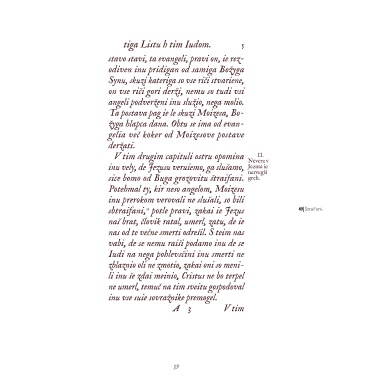 tiga Listu h tim Iudom. 5
stavo stavi, ta evangeli, pravi on, ie roz-
odiven inu pridigan od samiga Božyga
Synu, skuzi kateriga so vse riči stvariene,
on vse riči gori derži, nemu so tudi vsi
angeli podverženi inu služio, nega molio.
Ta postava pag ie le skuzi Moizesa, Bo-
žyga hlapca dana. Obtu se ima od evan-
gelia več koker od Moizesove postave
deržati.
V tim drugim capituli ostru opomina
inu vely, de Jezusu veruiemo, ga slušamo,
sice bomo od Buga grozovitu štraifani.
Potehmal ty, kir neso angelom, Moizesu
inu prerokom verovali ne slušali, so bili
shtraifani,* potle pravi, zakai ie Jezus
naš brat, človik ratal, umerl, zatu, de ie
nas od te večne smerti odrešil. S teim nas
vabi, de se nemu raiši podamo inu de se
Iudi na nega pohlevsčini inu smerti ne
zblaznio oli ne zmotio, zakai oni so meni-
li inu še zdai meinio, Cristus ne bo terpel
ne umerl, temuč na tim sveitu gospodoval
inu vse suie sovražnike premogel.
A 3 V tim
II.
Nevera v
Jezusa ie
nervegši
greh.
49 Straifani.
39